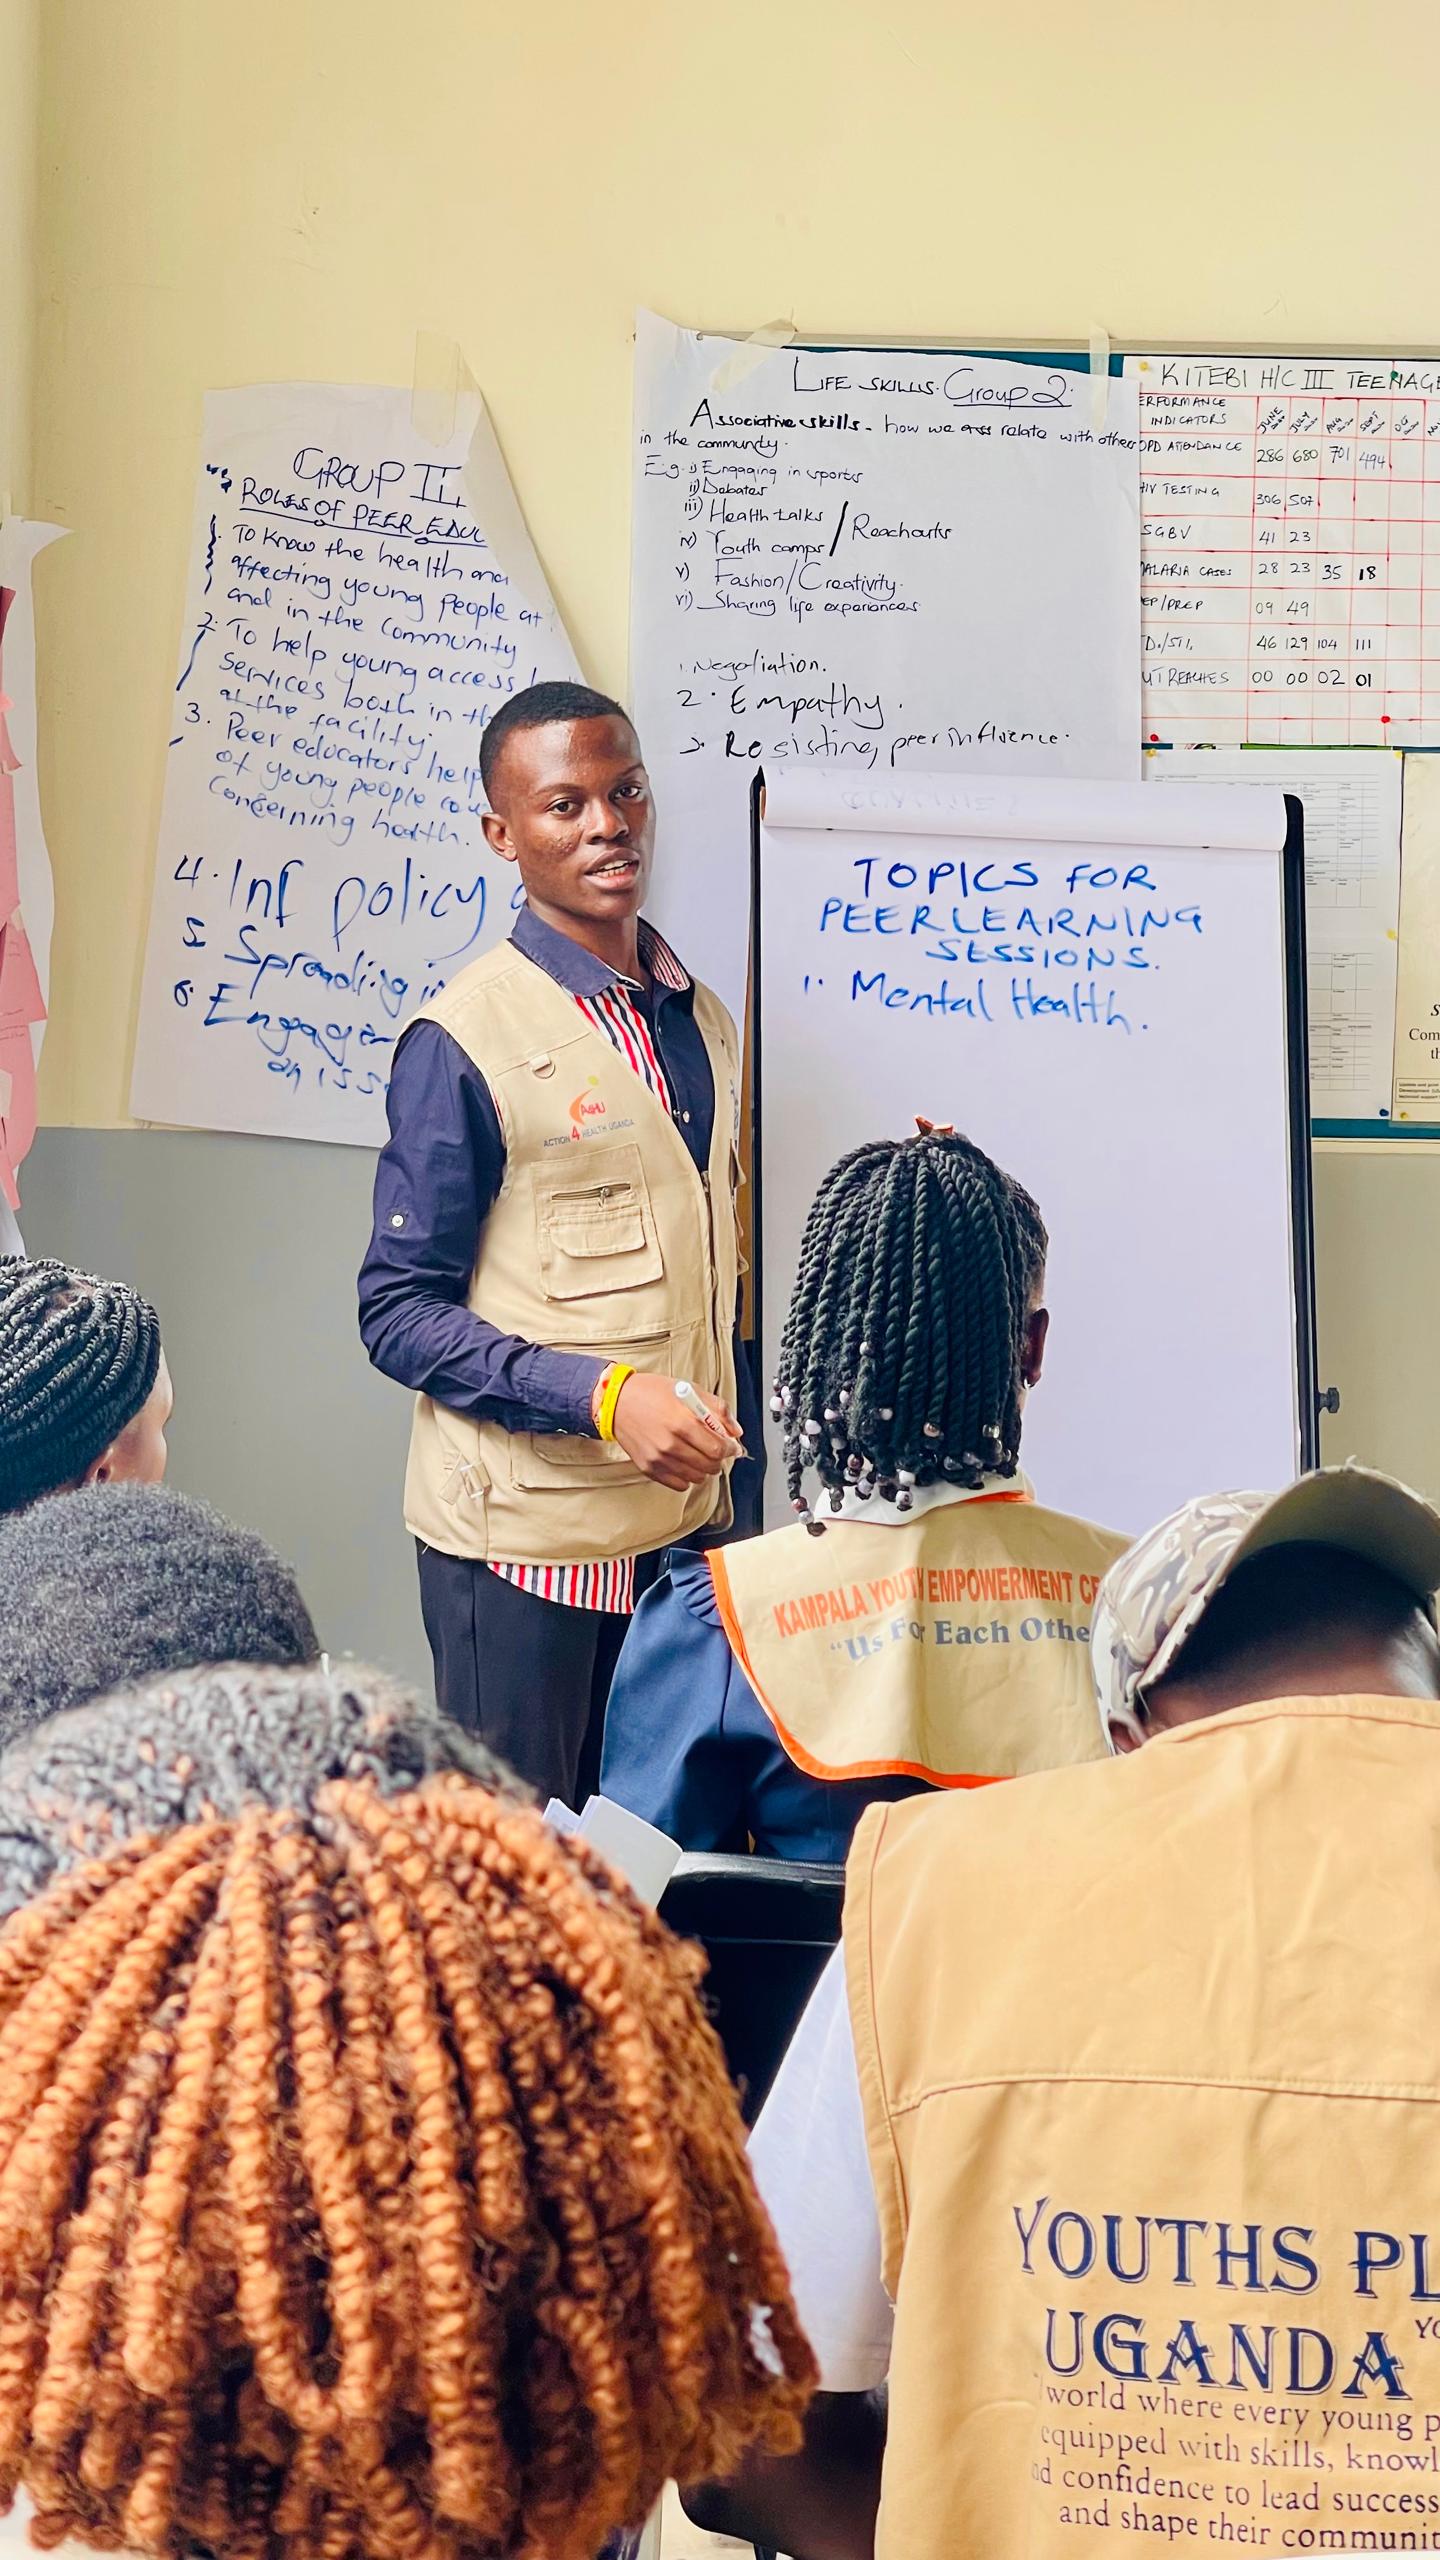 GROUP II,
ROLES OF PEER EDUC
1. To know the health and
affecting young people at
and in the community
2. To help young access
services both in the
at the facility.
3. Peer educators help
of young people
concerning health.
4. Inf policy
5. Spreading
6. Engage
on iss
LIFE SKILLS. Group 2.
Associative skills - how we relate with others
in the community.
E.g. i) Engaging in sports
ii) Debates
iii) Health talks / Reachouts
iv) Youth camps
v) Fashion/Creativity.
vi) Sharing life experiences
1. Negotiation.
2. Empathy.
3. Resisting peer influence.
KITEBI H/C III TEENAGE
ERFORMANCE
INDICATORS JUNE JULY AUG SEPT
OPD ATTENDANCE 286 680 701 494
HIV TESTING 306 507
SGBV 41 23
MALARIA CASES 28 23 35 18
EP/PREP 09 49
D./STI. 46 129 104 111
UTREACHES 00 00 02 01
TOPICS FOR
PEER LEARNING
SESSIONS.
1. Mental Health.
A4HU
ACTION 4 HEALTH UGANDA
KAMPALA YOUTH EMPOWERMENT CE
"Us For Each Othe
YOUTHS PL
UGANDA
world where every young p
equipped with skills, knowl
nd confidence to lead success
and shape their communit